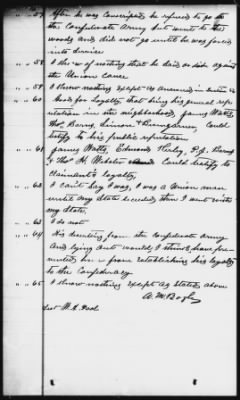 " " 57 After he was conscripted he refused to go in
the Confederate Army but went to the
woods and did not go until he was forced
into service
" " 58 I know of nothing that he did or said against
the Union Cause
" " 59 I know nothing except as answered in
" " 60 Good for loyalty that being his general repu-
tation in the neighborhood, James Watts
Thos. Burns, Simon Baumgarner, could
testify to his public reputation
" " 61 James Watts, Edmond Haley, P. J. Burns
& Thos H. Webster could testify to
Claimant's loyalty
" " 62 I can't say I was, I was a Union man
until my State seceded then I went with
my State,
" " 63 I do not
" " 64 His deserting from the Confederate Army
and lying out would, I think, have pre-
vented him from establishing his loyalty
to the Confederacy
" " 65 I know nothing except as stated above
A. M. Bogle
test W. H.